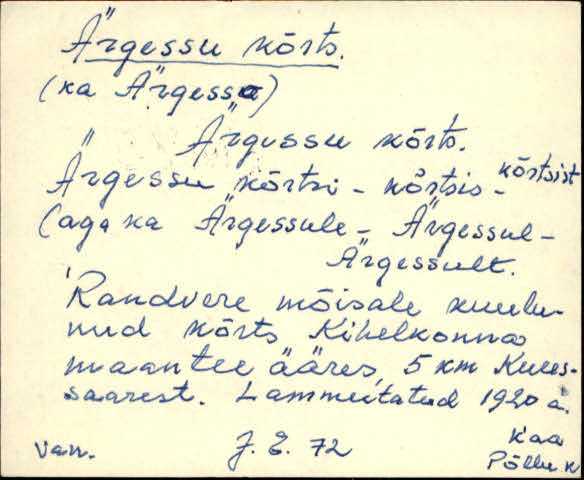 Ärgessu kõrts.
(ka Ärgessa)
Ärgessu kõrts.
Ärgessu kõrtsi - kõrtsis - kõrtsist
(aga ka Ärgessule - Ärgessul -
Ärgessult.
Randvere mõisale kuulu-
nud kõrts Kihelkonna
maantee ääres, 5 km Kures-
saarest. Lammutatud 1920 a.
van. J. E. 72 Kaa
Põllu k